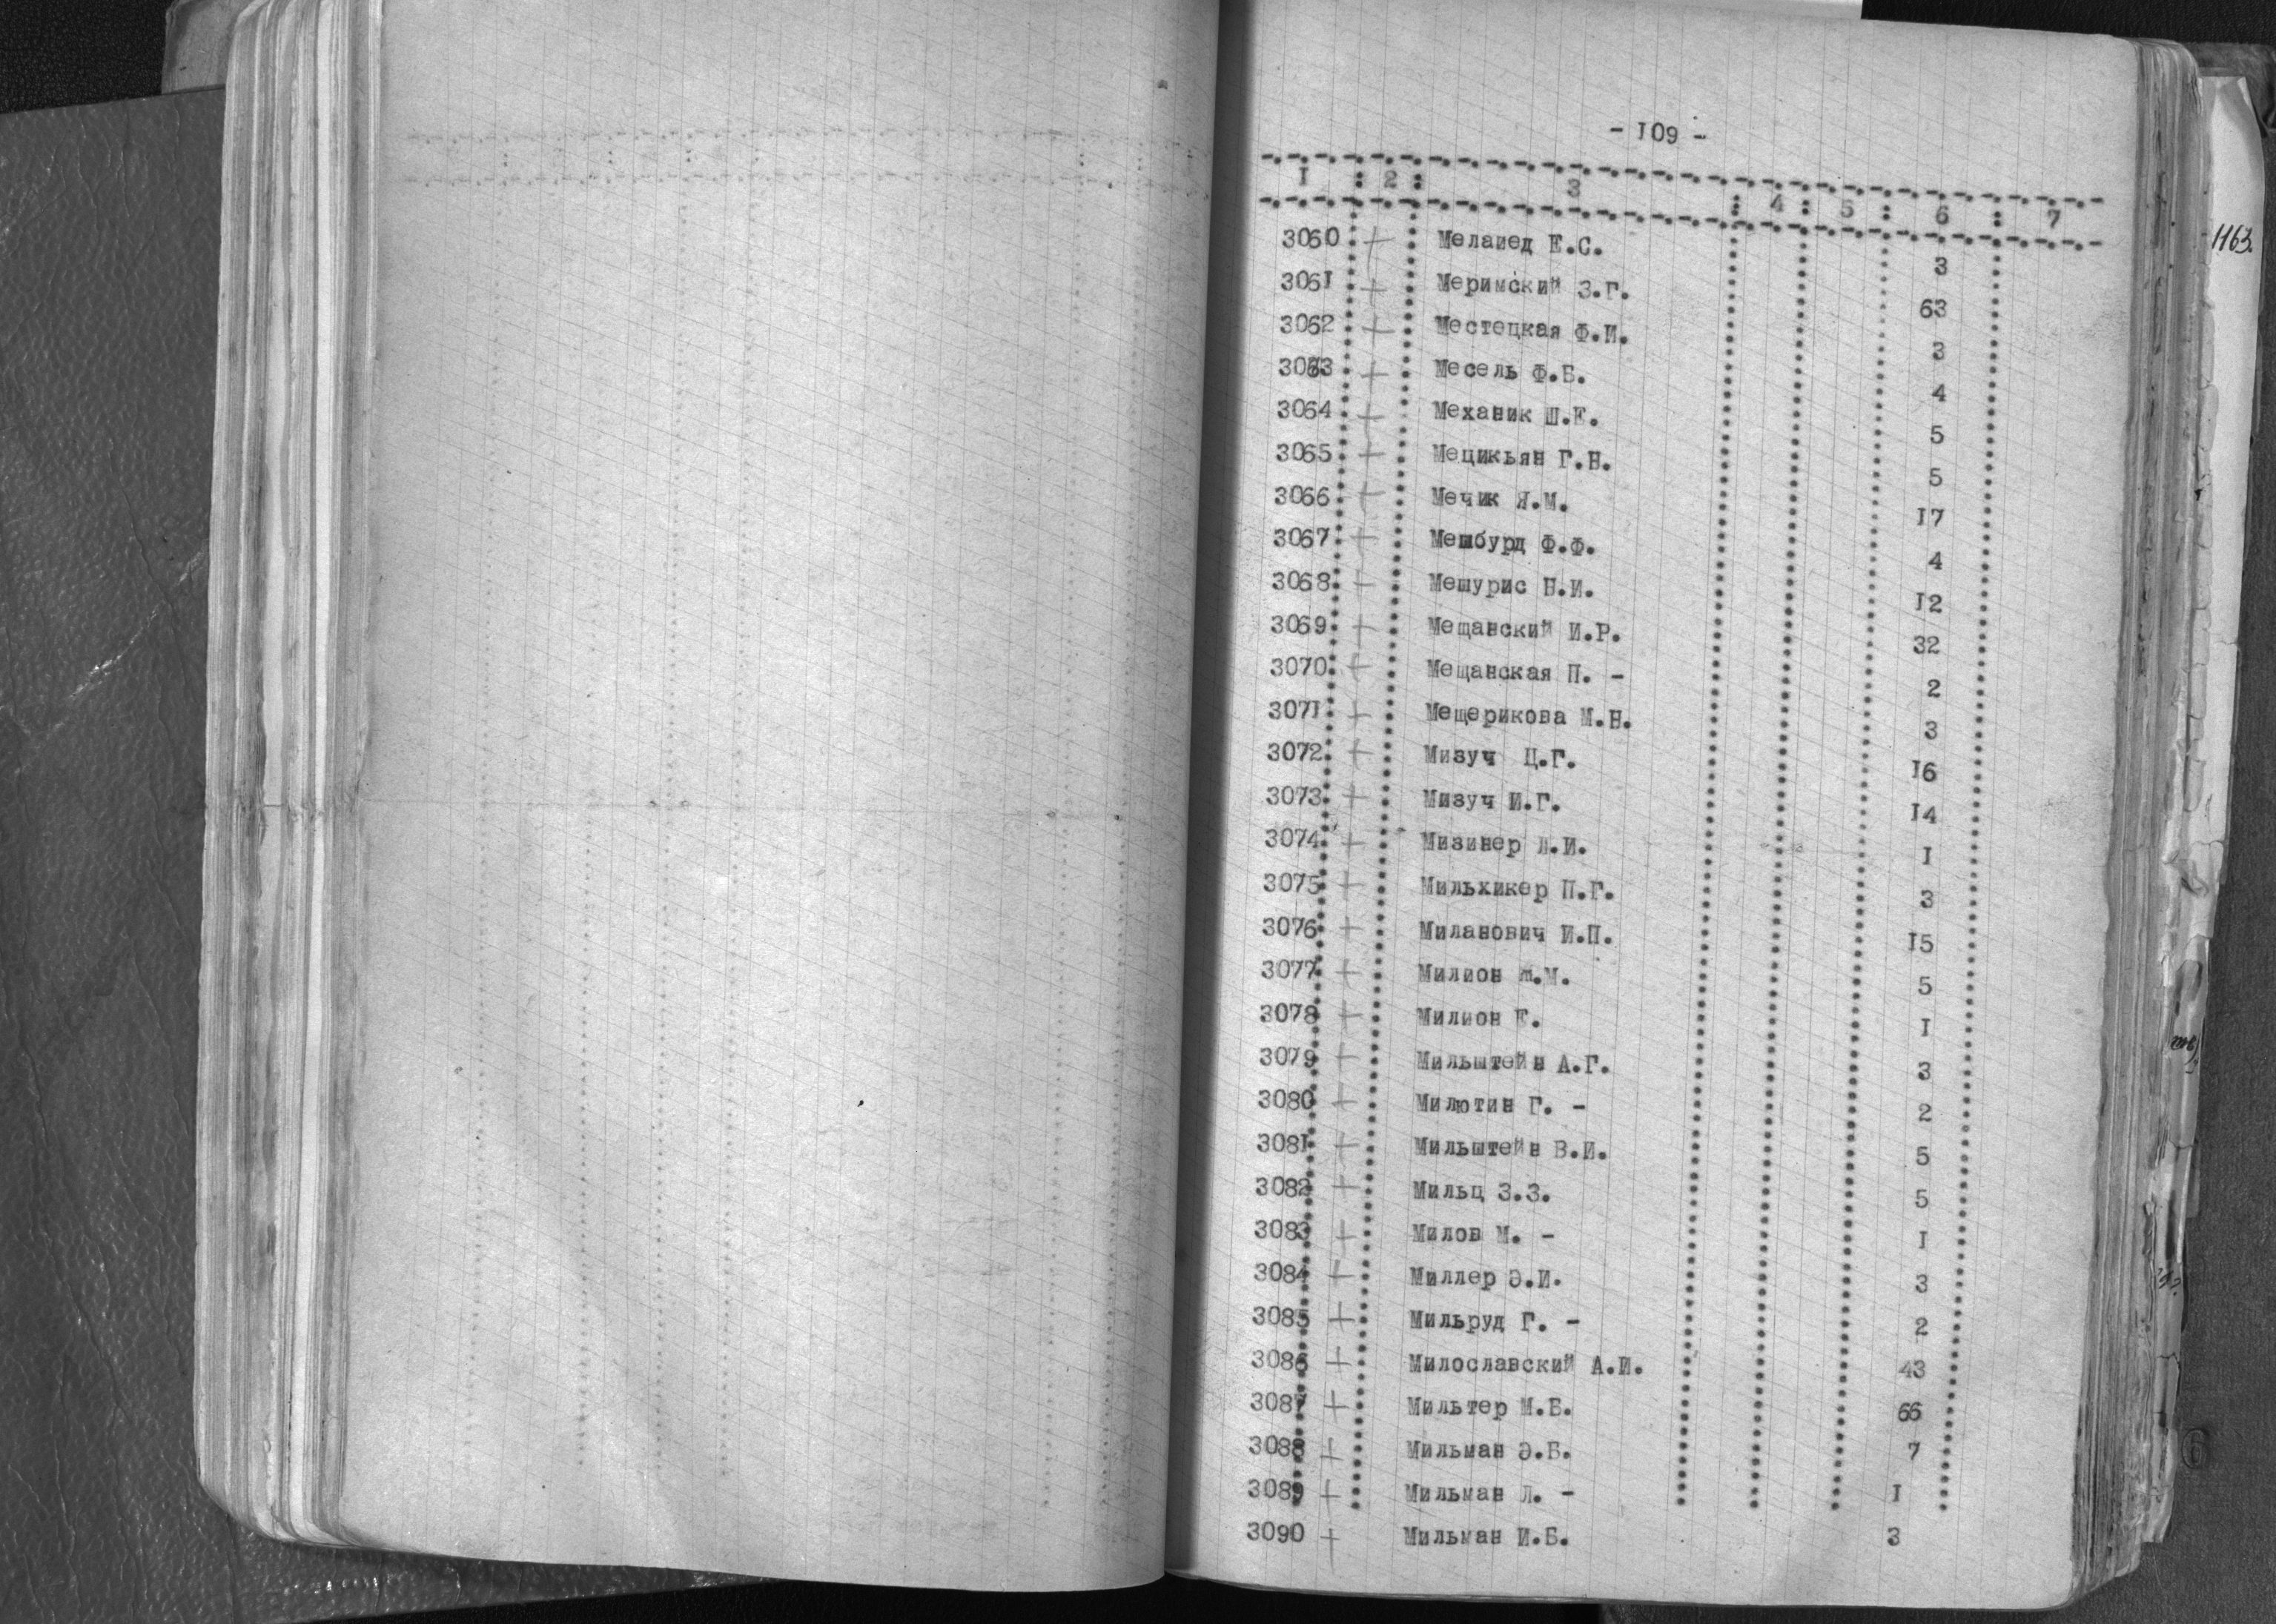 - I09 -
I : 2 : 3 : 4 : 5 : 6 : 7
3060 + Меламед Е.С. 3
3061 + Меримский З.Г. 63
3062 + Местецкая Ф.И. 3
3063 + Месель Ф.Б. 4
3064 + Механик Ш.Е. 5
3065 + Мецикьян Г.Н. 5
3066 + Мечик Я.М. I7
3067 + Мешбурд Ф.Ф. 4
3068 + Мешурис Н.И. I2
3069 + Мещанский И.Р. 32
3070 + Мещанская П. - 2
307I + Мещерикова М.Н. 3
3072 + Мизуч Ц.Г. I6
3073 + Мизуч И.Г. I4
3074 + Мизинер Л.И. I
3075 + Мильхикер П.Г. 3
3076 + Миланович И.П. I5
3077 + Милион М. 5
3078 + Милион Е. I
3079 + Мильштейн А.Г. 3
3080 + Милютин Г. - 2
308I + Мильштейн В.И. 5
3082 + Мильц З.З. 5
3083 + Милов М. - I
3084 + Миллер Э.И. 3
3085 + Мильруд Г. - 2
3086 + Милославский А.И. 43
3087 + Мильтер М.Б. 66
3088 + Мильман Э.Б. 7
3089 + Мильман Л. - I
3090 + Мильман И.Б. 3
1163.